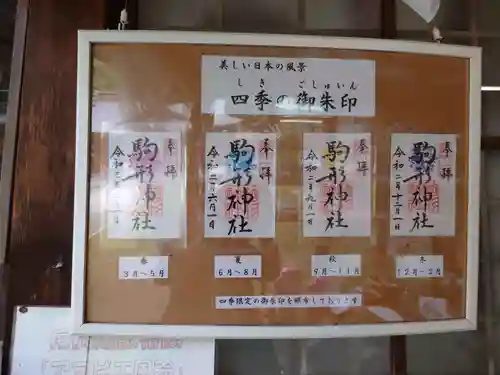 美しい日本の風景
しき ごしゅいん
四季の御朱印
奉拝
駒形神社
奉拝
駒形神社
令和二年六月一日
奉拝
駒形神社
令和二年九月一日
奉拝
駒形神社
令和二年十二月一日
春
3月～5月
夏
6月～8月
秋
9月～11月
冬
12月～2月
四季限定の御朱印を頒布しております